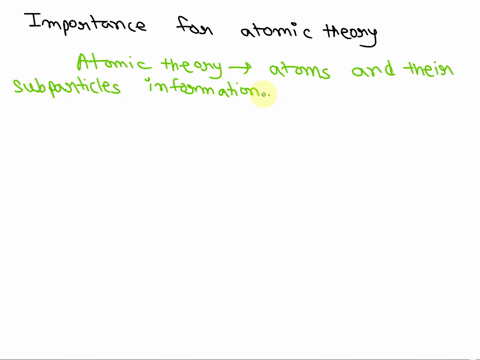 Importance for atomic theory
Atomic theory → atoms and their
subparticles information.